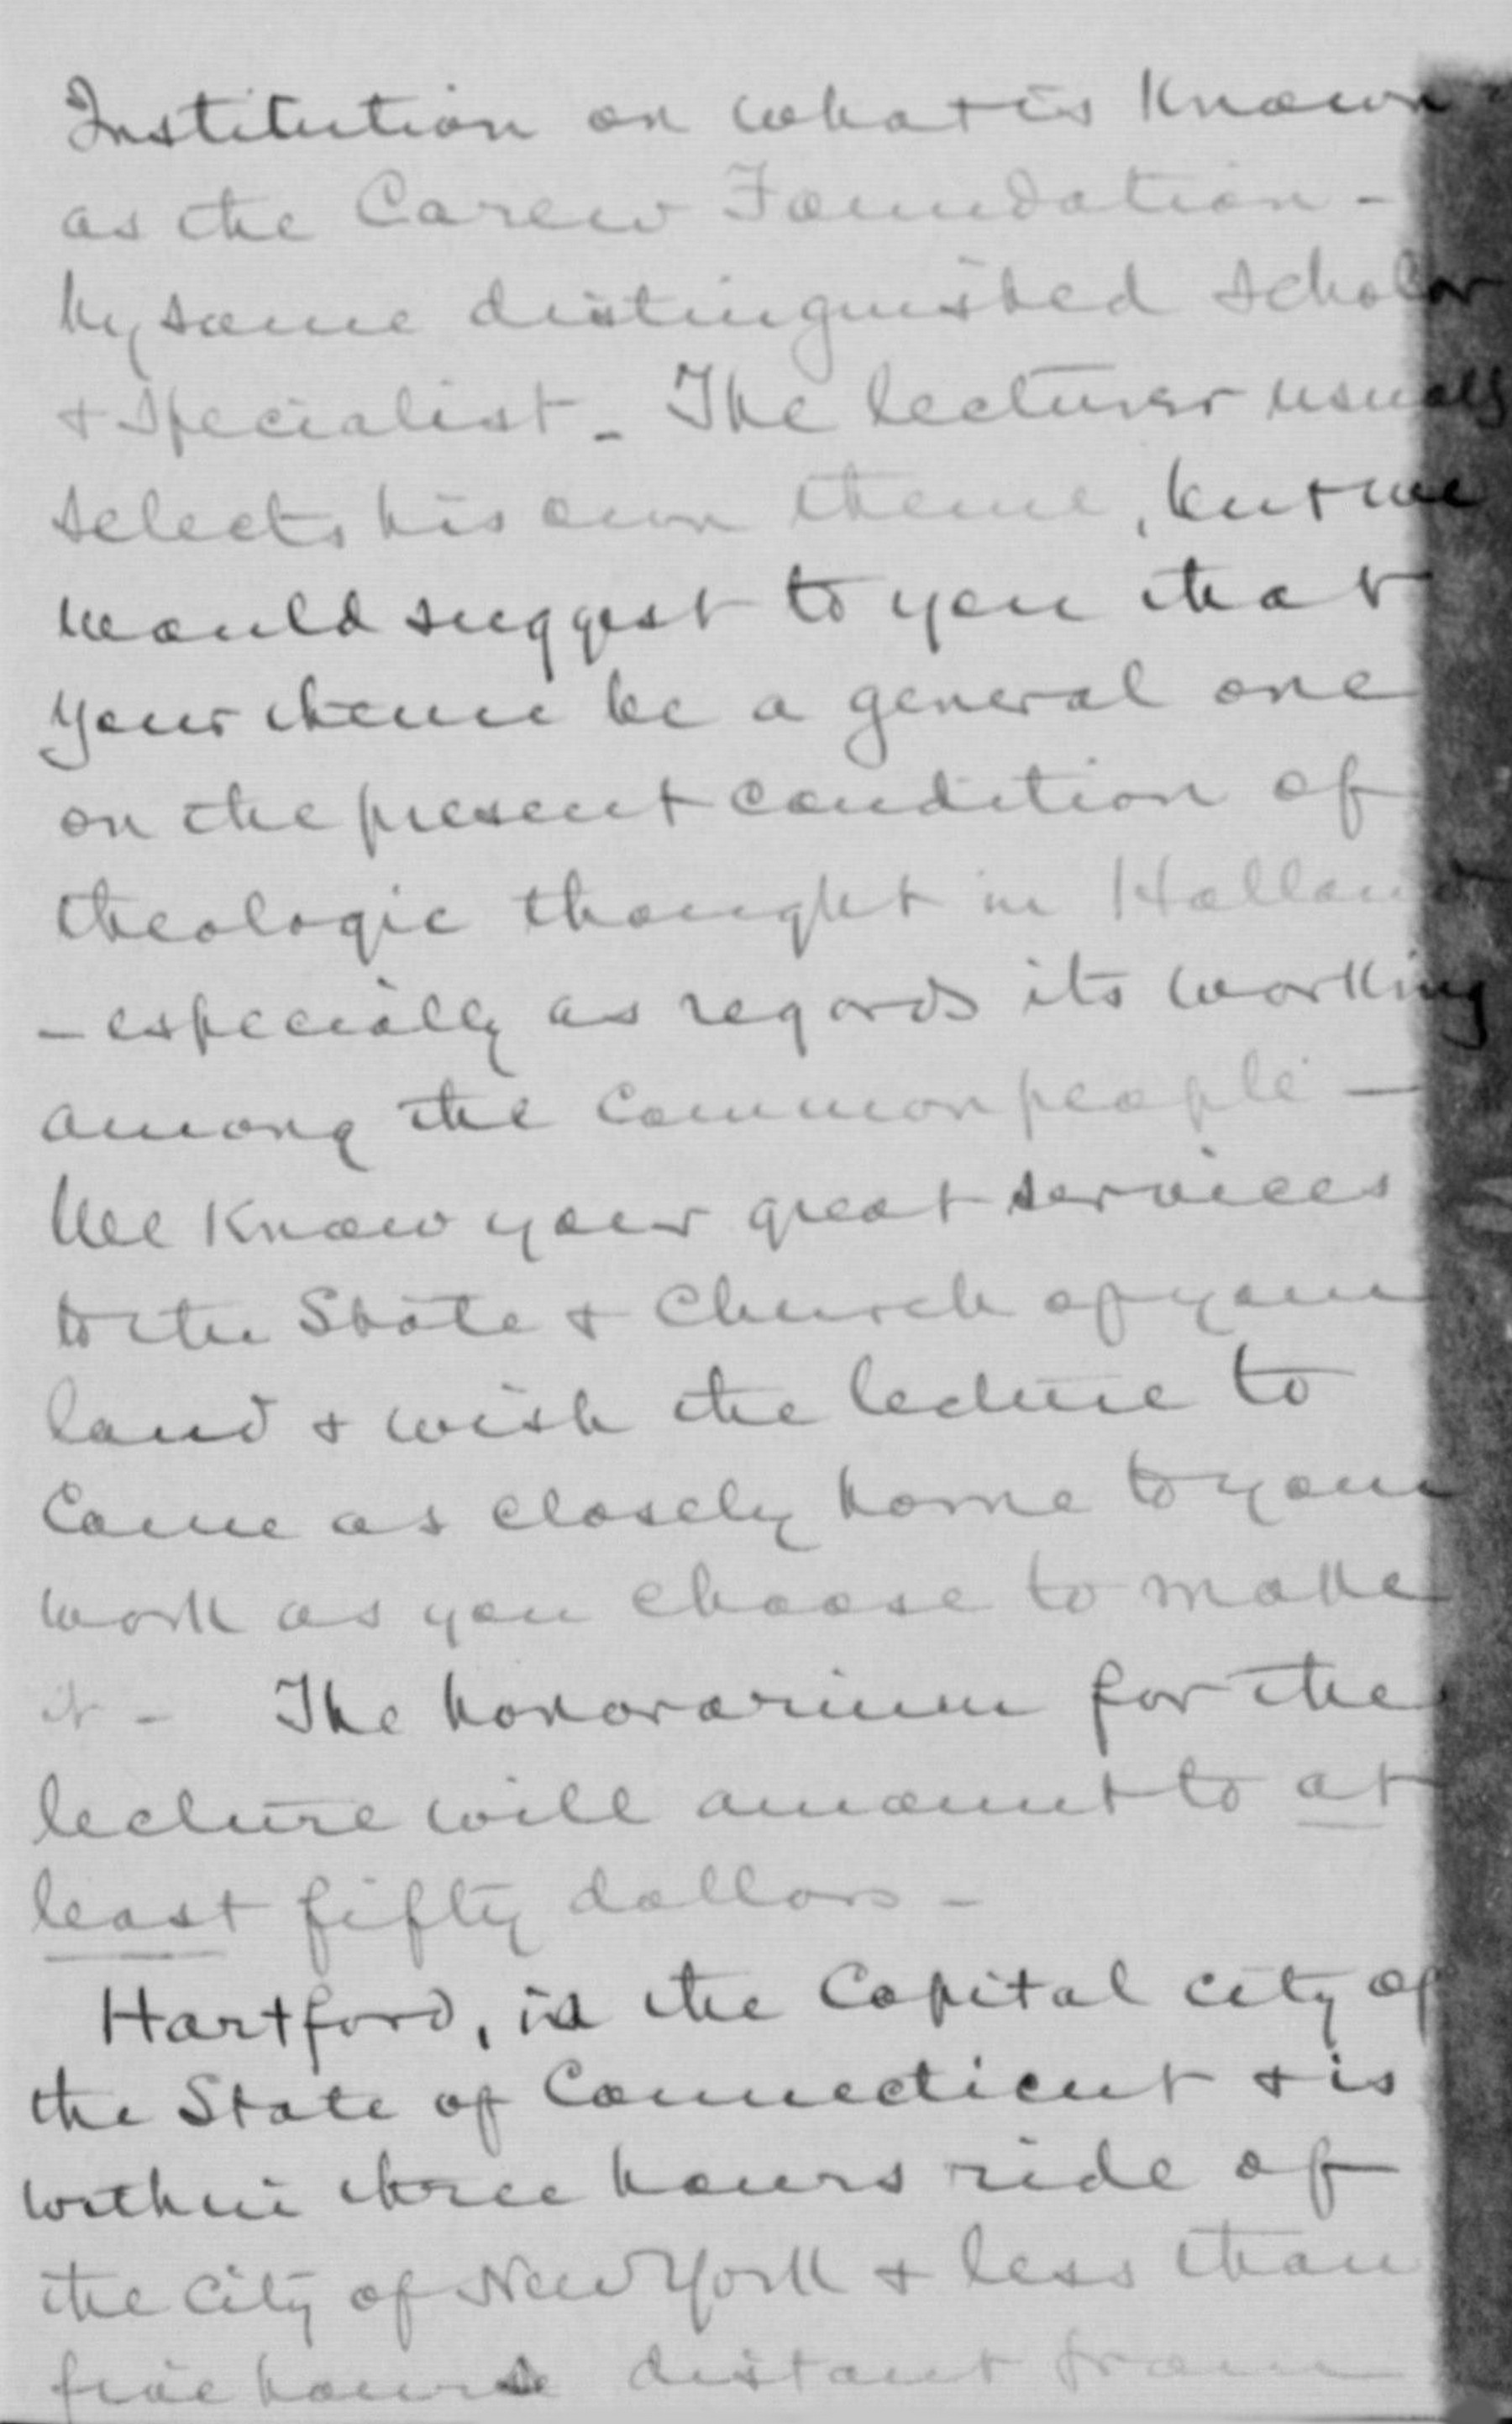 Institution on what is Known
as the Carew Foundation -
by some distinguished scholar
+ specialist - The lecturer usually
selects his own theme, but we
would suggest to you that
your theme be a general one
on the present condition of
theologic thought in Holland
- especially as regards its working
among the Common people -
We Know your great services
to the State + Church of your
land + wish the lecture to
Come as closely home to your
work as you choose to make
it - The honorarium for the
lecture will amount to at
least fifty dollars -
Hartford, is the Capital city of
the State of Connecticut + is
within three hours ride of
the City of New York + less than
five hours distant from